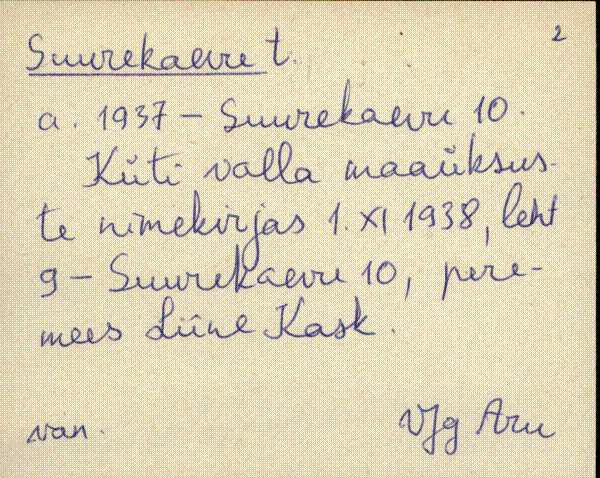 2
Suurekaevu t.
a. 1937 – Suurekaevu 10.
Küti valla maaüksus-
te nimekirjas 1. XI 1938, leht
9 – Suurekaevu 10, pere-
mees Liine Kask.
van.
VJg Aru